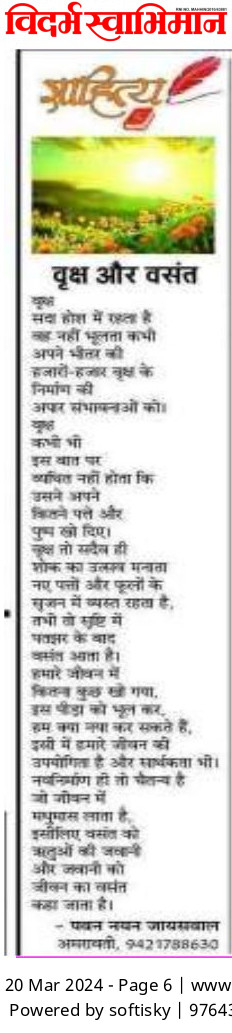 विदर्भ स्वाभिमान
साहित्य
वृक्ष और वसंत
वृक्ष
सदा होश में रहता है
वह नहीं भूलता कभी
अपने भीतर की
हजारों-हजार वृक्ष के
निर्माण की
अपार संभावनाओं को।
वृक्ष
कभी भी
इस बात पर
व्यथित नहीं होता कि
उसने अपने
कितने पत्ते और
पुष्प खो दिए।
वृक्ष तो सदैव ही
शोक का उत्सव मनाता
नए पत्तों और फूलों के
सृजन में व्यस्त रहता है,
तभी तो सृष्टि में
पतझर के बाद
वसंत आता है।
हमारे जीवन में
कितना कुछ खो गया,
इस पीड़ा को भूल कर,
हम क्या नया कर सकते हैं,
इसी में हमारे जीवन की
उपयोगिता है और सार्थकता भी।
नवनिर्माण ही तो चैतन्य है
जो जीवन में
मधुमास लाता है,
इसीलिए वसंत को
ऋतुओं की जवानी
और जवानी को
जीवन का वसंत
कहा जाता है।
- पवन नयन जायसवाल
अमरावती, 9421788630
20 Mar 2024 - Page 6 | www
Powered by softisky | 9764